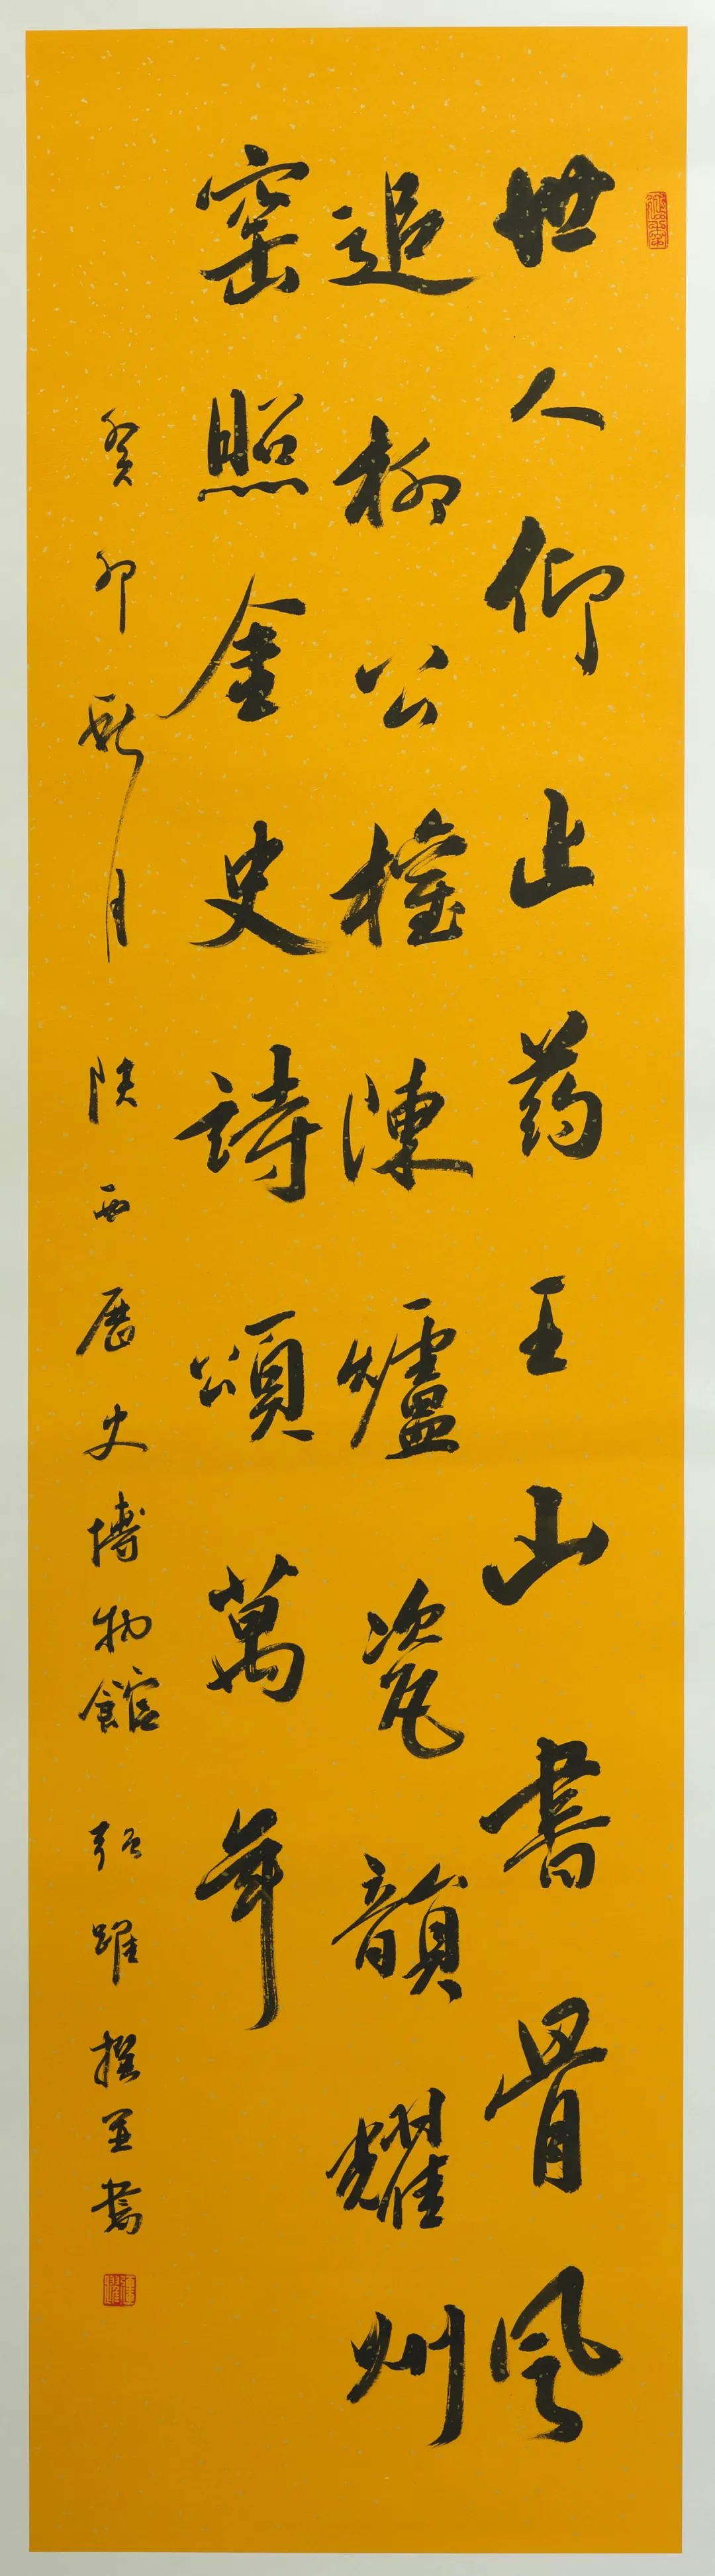 世人仰止药王山書骨風
追柳公權陳爐瓷韻耀州
窑照金史詩頌萬年
癸卯秋月陕西历史博物館强躍撰並書